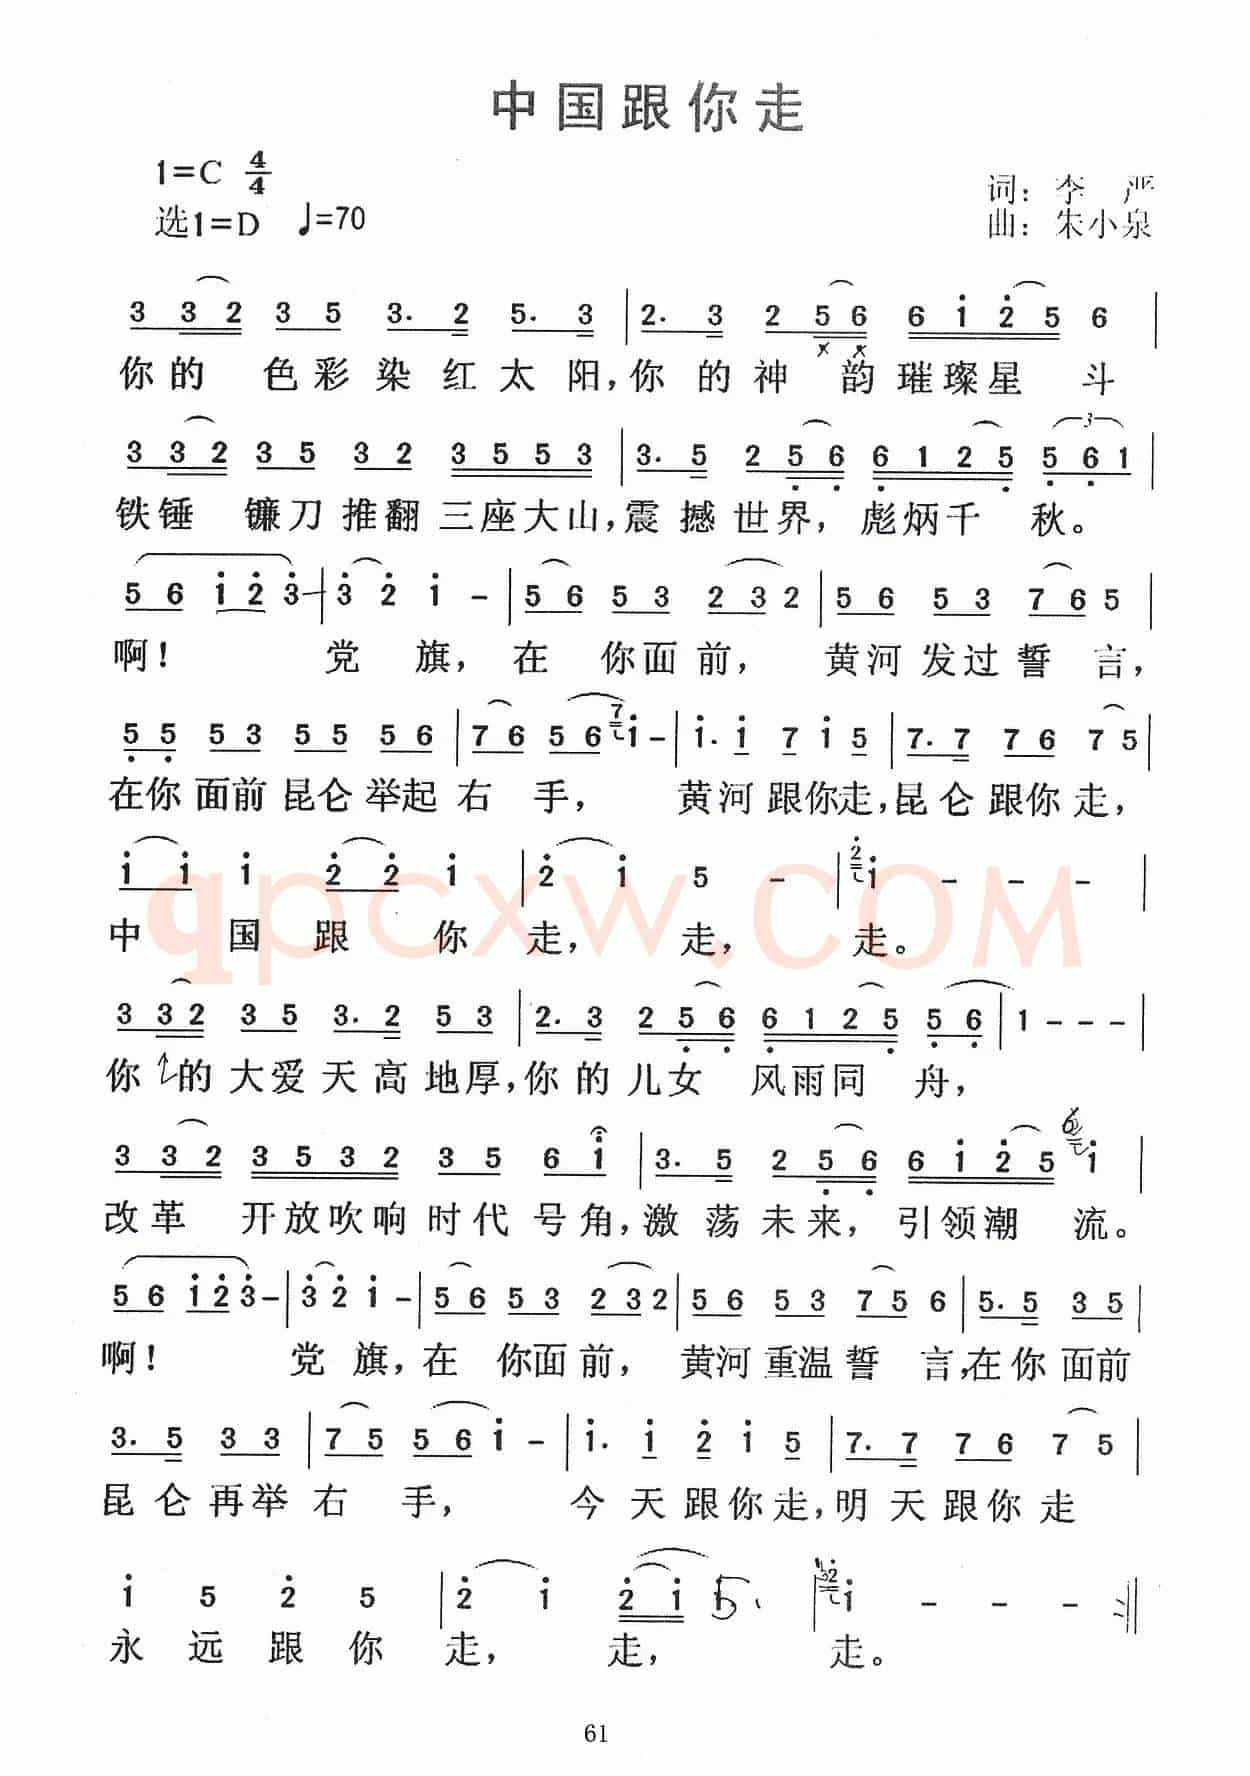 中国跟你走
1=C 4/4
词：李 严
选1=D ♩=70
曲：朱小泉
3 3 2 3 5 3. 2 5. 3 | 2. 3 2 5 6 6 i 2 5 6 |
你的 色彩染红太阳，你的神 韵璀璨星 斗
3 3 2 3 5 3 2 3 5 5 3 | 3. 5 2 5 6 6 1 2 5 5 6 1 |
铁锤 镰刀推翻三座大山，震撼世界，彪炳千 秋。
5 6 i 2 3 - | 3 2 i - | 5 6 5 3 2 3 2 | 5 6 5 3 7 6 5 |
啊！ 党 旗，在 你面前， 黄河发过誓 言，
5 5 5 3 5 5 5 6 | 7 6 5 6 7 i - | i. i 7 i 5 | 7. 7 7 6 7 5 |
在你面前昆仑举起右 手， 黄河跟你走，昆仑跟你走，
i i i 2 2 i | 2 i 5 - | 2 i - - - |
中 国 跟 你 走， 走， 走。
qpcxw.COM
3 3 2 3 5 3. 2 5 3 | 2. 3 2 5 6 6 1 2 5 5 6 | 1 - - - |
你 的大爱天高地厚，你的儿女 风雨同 舟，
3 3 2 3 5 3 2 3 5 6 i | 3. 5 2 5 6 6 i 2 5 6 i |
改革 开放吹响时代号角，激荡未来，引领潮 流。
5 6 i 2 3 - | 3 2 i - | 5 6 5 3 2 3 2 | 5 6 5 3 7 5 6 | 5. 5 3 5 |
啊！ 党 旗，在 你面前， 黄河重温誓 言，在你面前
3. 5 3 3 | 7 5 5 6 i - | i. i 2 i 5 | 7. 7 7 6 7 5 |
昆仑再举右 手， 今天跟你走，明天跟你走
i 5 2 5 | 2 i 2 i 5 | 2 i - - - :||
永 远 跟 你 走， 走， 走。
61